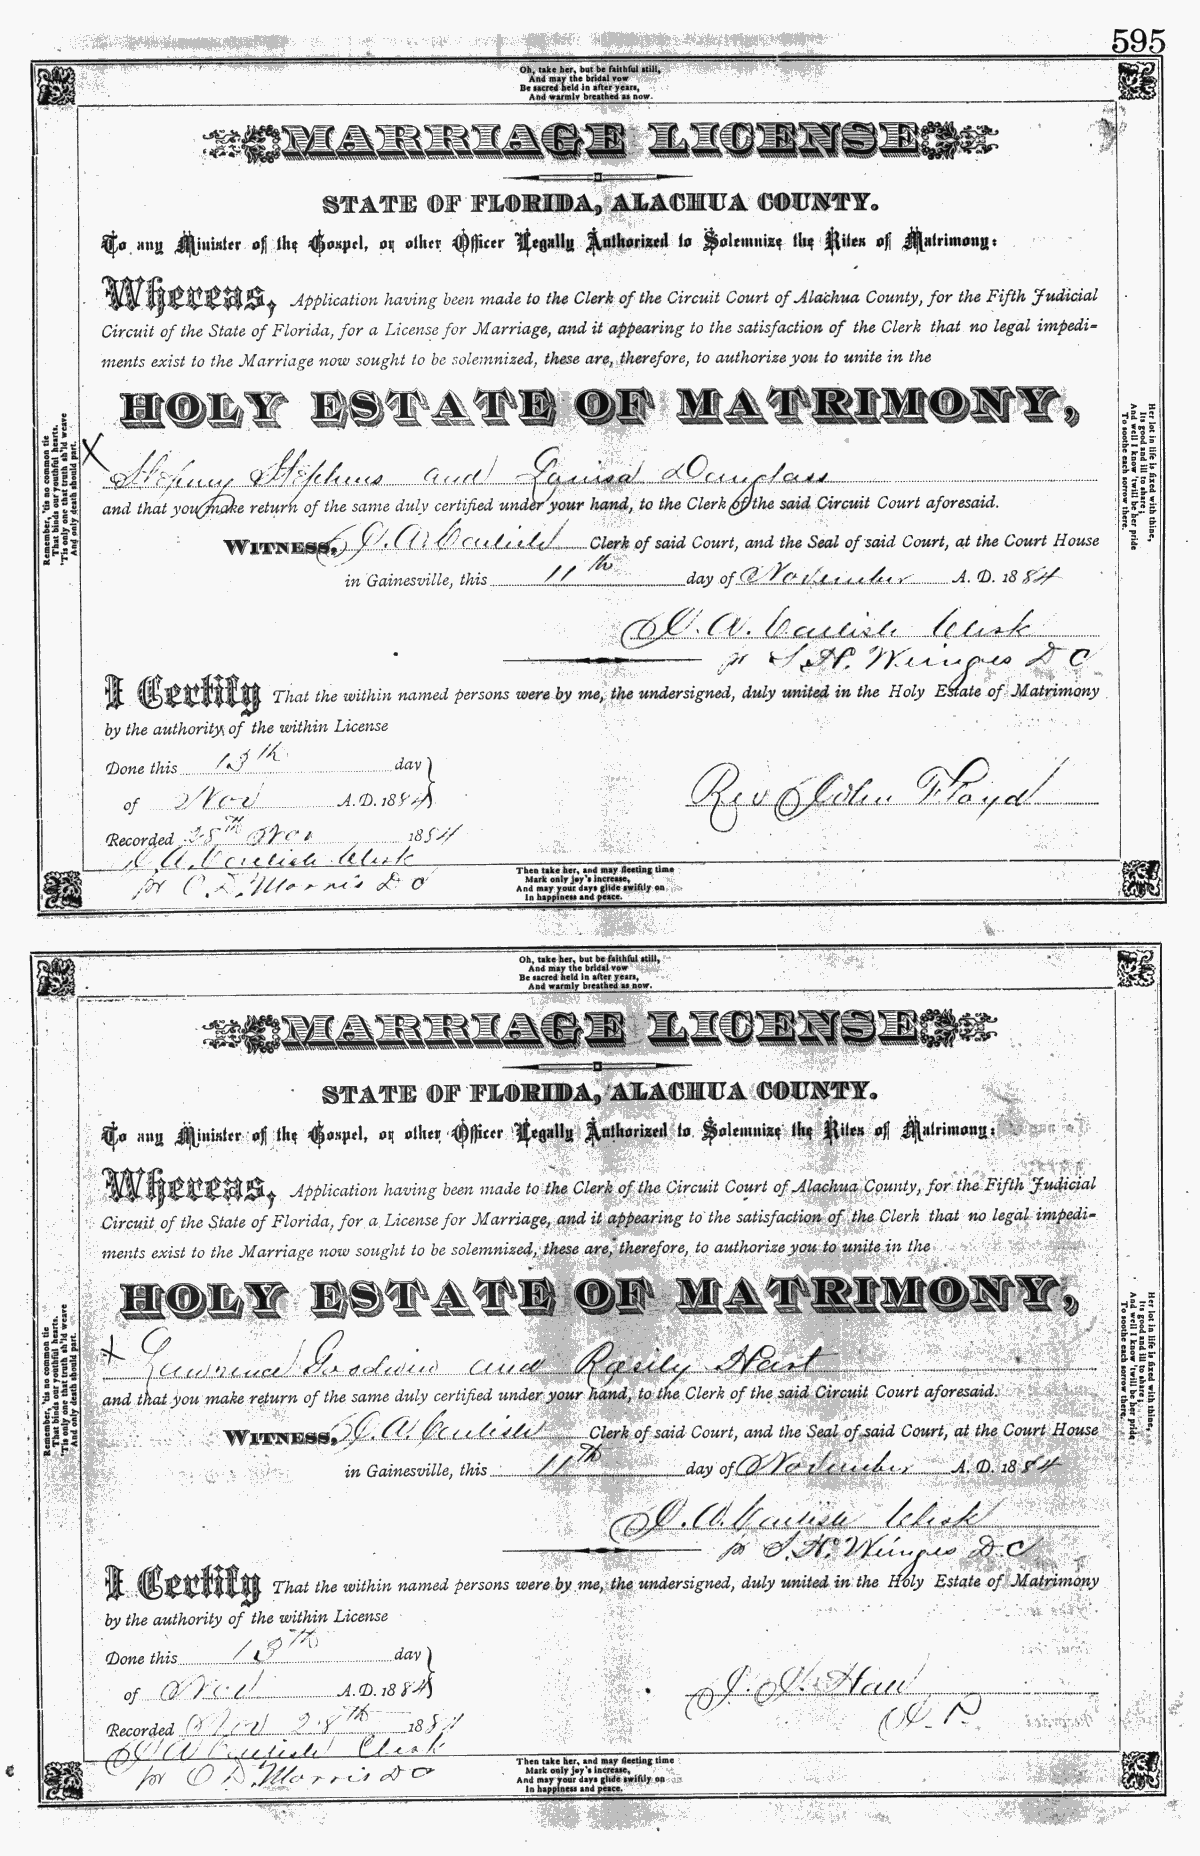 595
Oh, take her, but be faithful still,
And may the bridal vow
Be sacred held in after years,
And warmly breathed as now.
MARRIAGE LICENSE
STATE OF FLORIDA, ALACHUA COUNTY.
To any Minister of the Gospel, or other Officer Legally Authorized to Solemnize the Rites of Matrimony:
Whereas, Application having been made to the Clerk of the Circuit Court of Alachua County, for the Fifth Judicial
Circuit of the State of Florida, for a License for Marriage, and it appearing to the satisfaction of the Clerk that no legal impedi-
ments exist to the Marriage now sought to be solemnized, these are, therefore, to authorize you to unite in the
HOLY ESTATE OF MATRIMONY,
X Stephens and Louisa Douglass
and that you make return of the same duly certified under your hand, to the Clerk of the said Circuit Court aforesaid.
WITNESS, J. A. Carlisle Clerk of said Court, and the Seal of said Court, at the Court House
in Gainesville, this 11th day of November A. D. 1884
J. A. Carlisle Clerk
pr S. H. Wienges D C
I Certify That the within named persons were by me, the undersigned, duly united in the Holy Estate of Matrimony
by the authority of the within License
Done this 13th day
of Nov A. D. 1884
Rev John Floyd
Recorded 28th Nov 1884
J. A. Carlisle Clerk
pr C. D. Morris D C
Remember, 'tis no common tie
That binds our youthful hearts,
'Tis only one that truth sh'ld weave
And only death should part.
Her lot in life is fixed with thine,
Its good and ill to share;
And well I know 'twill be her pride
To soothe each sorrow there.
Then take her, and may fleeting time
Mark only joy's increase,
And may your days glide swiftly on
In happiness and peace.
Oh, take her, but be faithful still,
And may the bridal vow
Be sacred held in after years,
And warmly breathed as now.
MARRIAGE LICENSE
STATE OF FLORIDA, ALACHUA COUNTY.
To any Minister of the Gospel, or other Officer Legally Authorized to Solemnize the Rites of Matrimony:
Whereas, Application having been made to the Clerk of the Circuit Court of Alachua County, for the Fifth Judicial
Circuit of the State of Florida, for a License for Marriage, and it appearing to the satisfaction of the Clerk that no legal impedi-
ments exist to the Marriage now sought to be solemnized, these are, therefore, to authorize you to unite in the
HOLY ESTATE OF MATRIMONY,
X Lawrence Goodwin and Rosily Hart
and that you make return of the same duly certified under your hand, to the Clerk of the said Circuit Court aforesaid.
WITNESS, J. A. Carlisle Clerk of said Court, and the Seal of said Court, at the Court House
in Gainesville, this 11th day of November A. D. 1884
J. A. Carlisle Clerk
pr S. H. Wienges D. C
I Certify That the within named persons were by me, the undersigned, duly united in the Holy Estate of Matrimony
by the authority of the within License
Done this 13th day
of Nov A. D. 1884
Recorded Nov 28th 1884
J A Carlisle Clerk
pr C D. Morris D C
Remember, 'tis no common tie
That binds our youthful hearts.
'Tis only one that truth sh'ld weave
And only death should part.
Her lot in life is fixed with thine,
Its good and ill to share;
And well I know 'twill be her pride
To soothe each sorrow there.
Then take her, and may fleeting time
Mark only joy's increase,
And may your days glide swiftly on
In happiness and peace.